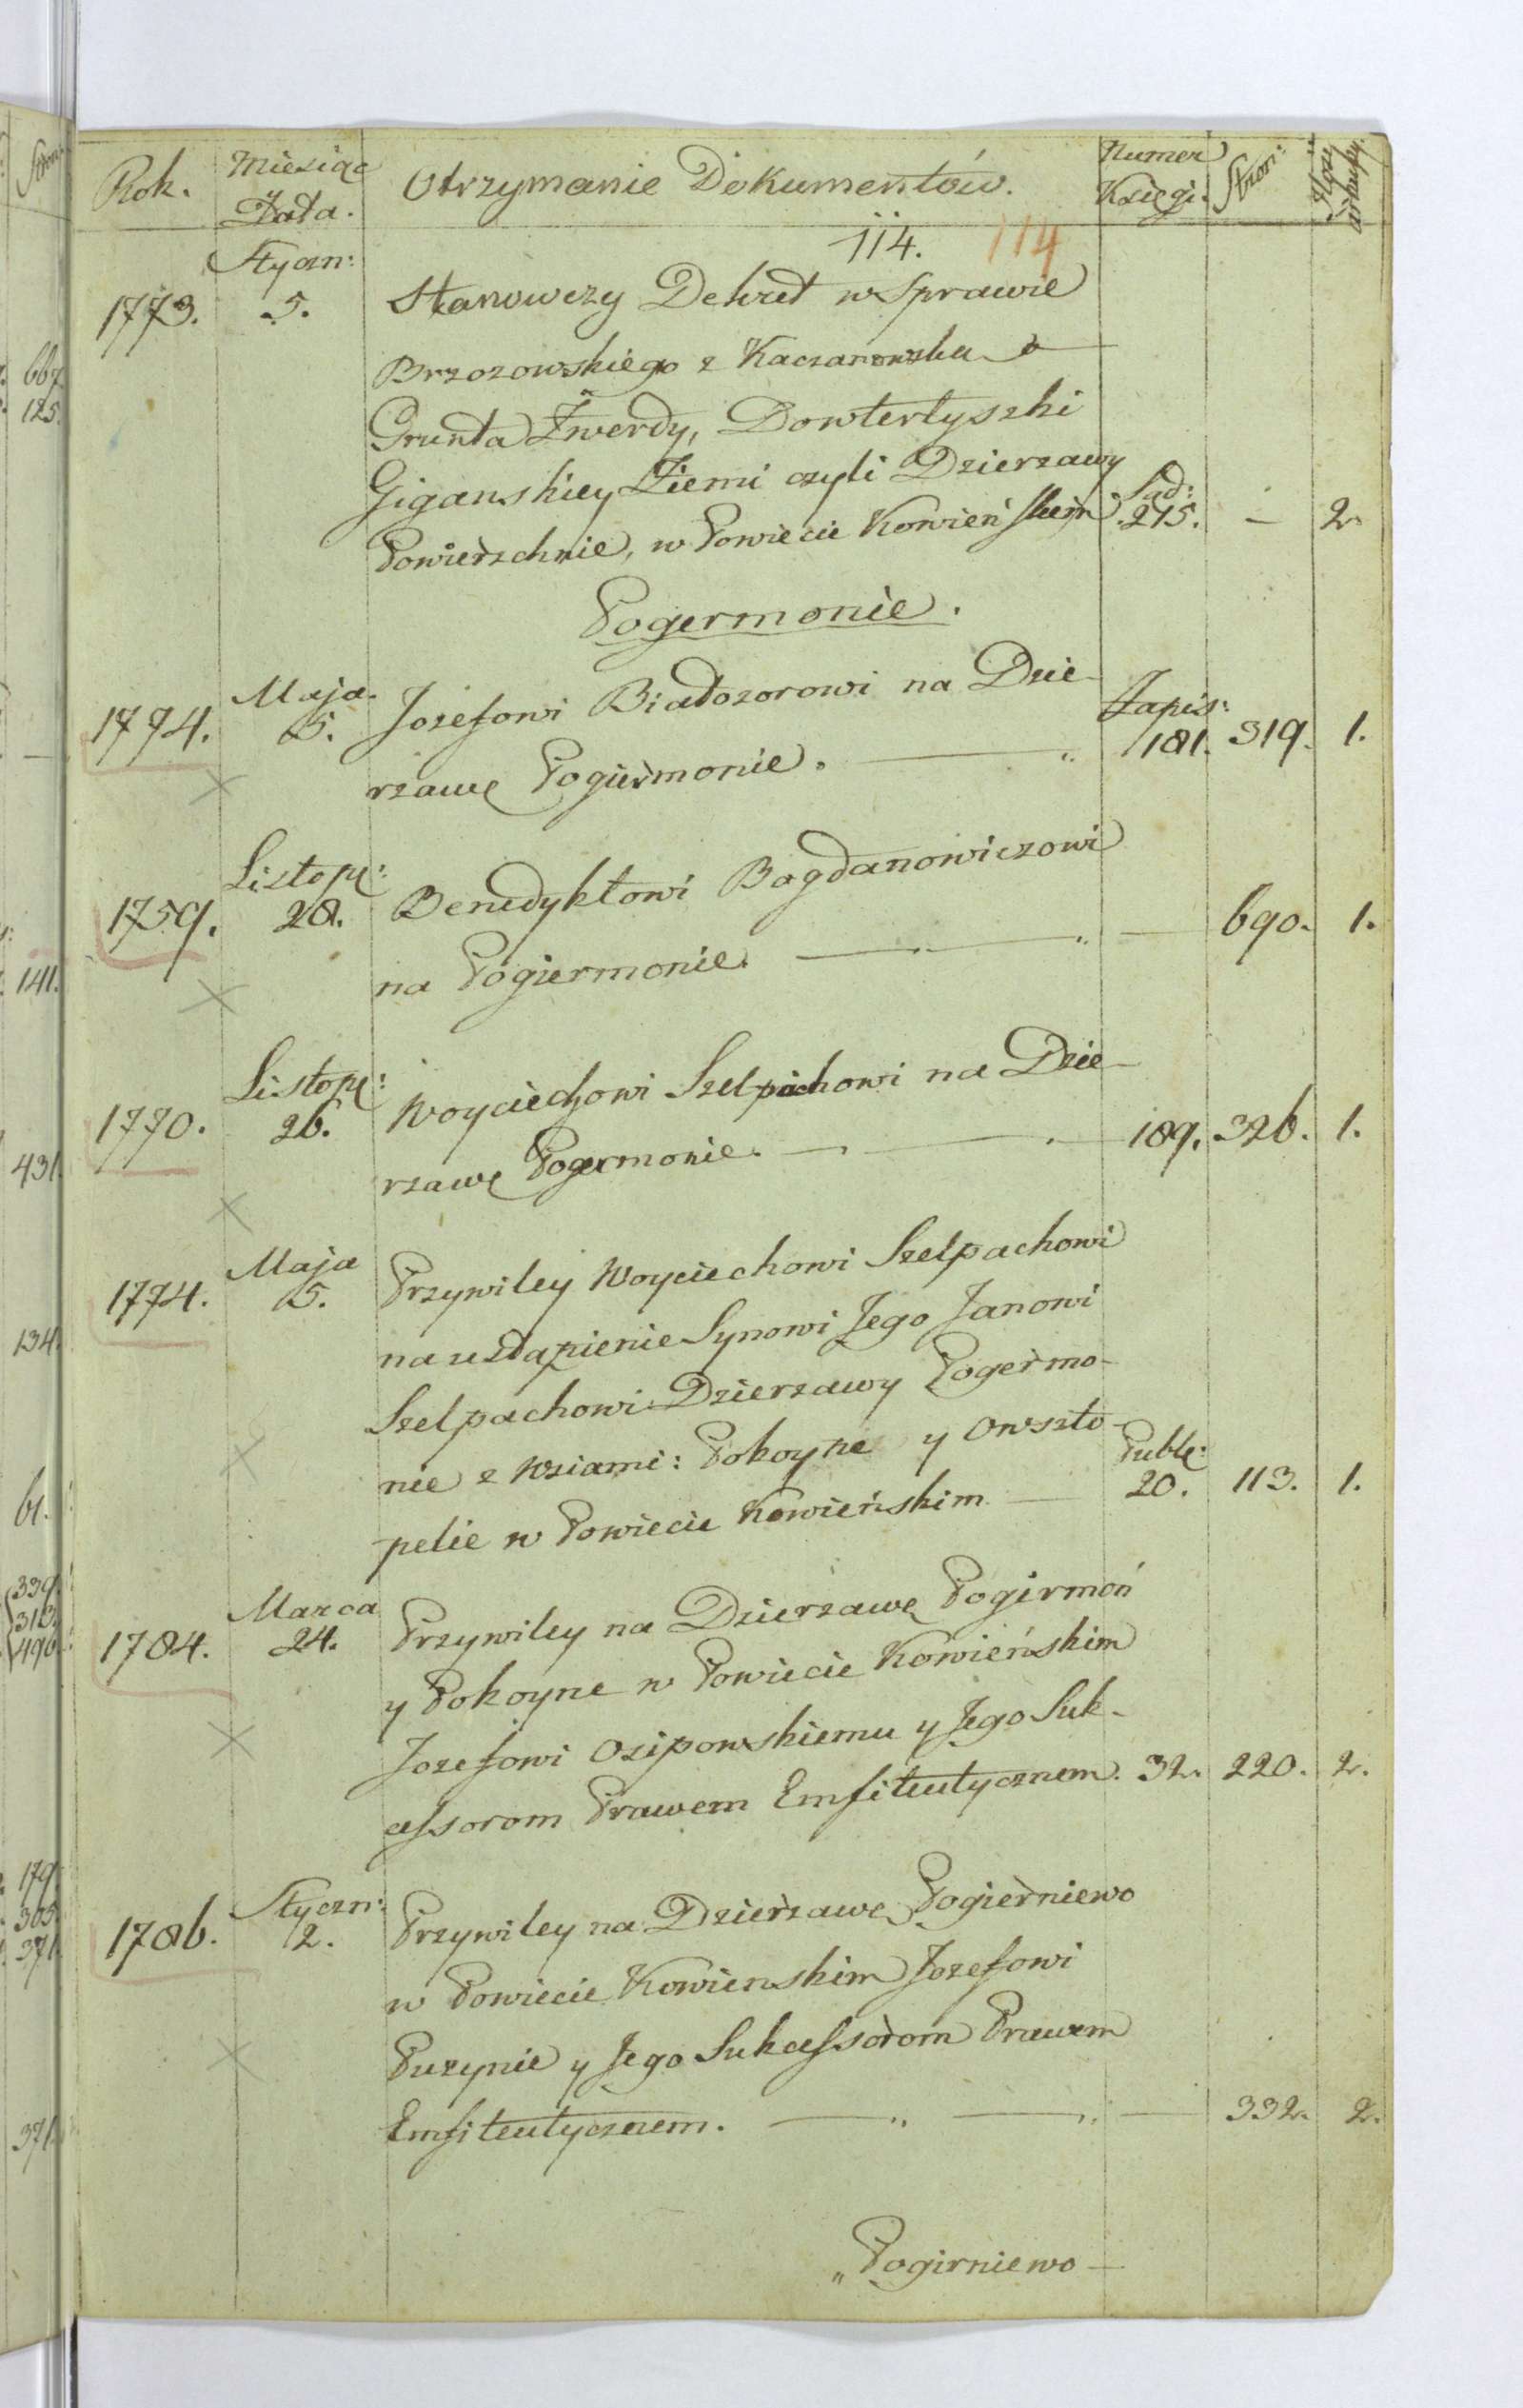 Rok. Miesiąc Data. Otrzymanie Dokumentów. Numer Księgi. Stron: Ilość arkuszy.
114. 114
1773. Styczn: 5. Stanowczy Dekret w Sprawie
Brzozowskiego z Kaczanowską o
Grunta Żwerdy, Dowtertyszki
Giganskiey Ziemi czyli Dzierzawy
Powierzchnie, w Powiecie Kowieńskim Sąd: 275. — 2.
Pogermonie.
1794. Maja 5. Jozefowi Białozorowi na Dzie-
rzawę Pogiermonie. Zapis: 181. 319. 1.
1759. Listop: 28. Benedyktowi Bogdanowiczowi
na Pogiermonie. — 690. 1.
1770. Listop: 26. Woyciechowi Szelpachowi na Dzie-
rzawę Pogermonie. 189. 326. 1.
1774. Maja 5. Przywiley Woyciechowi Szelpachowi
na ustąpienie Synowi Jego Janowi
Szelpachowi Dzierzawy Pogermo-
nie z Wsiami: Pokoyne y Owszto-
pelie w Powiecie Kowieńskim — Publ: 20. 113. 1.
1784. Marca 24. Przywiley na Dzierzawę Pogirmoń
y Pokoyne w Powiecie Kowieńskim
Jozefowi Osipowskiemu y Jego Suk-
cessorom Prawem Emfiteutycznem. 32. 220. 2.
1786. Styczn: 2. Przywiley na Dzierzawę Pogierniewo
w Powiecie Kowienskim Jozefowi
Puzynie y Jego Sukcessorom Prawem
Emfiteutycznem. — 332. 2.
„Pogirniewo —